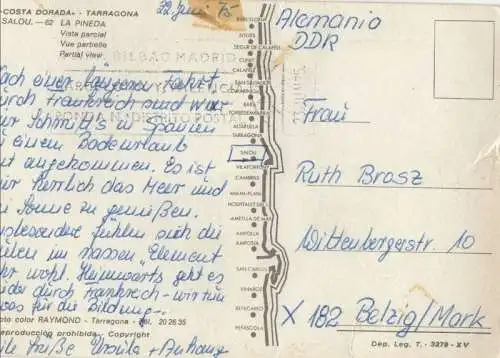 COSTA DORADA - TARRAGONA
SALOU. — 62 LA PINEDA
Vista parcial
Vue partielle
Partial view
22. Juni 75
BILBAO MADRID
DISTRITO POSTAL
Nach einer längeren Fahrt
durch Frankreich sind wir
Schmitt's in Spanien
zu einem Badeurlaub
gut angekommen. Es ist
herrlich das Meer und
Sonne zu genießen.
Insbesondere fühlen sich die
im nassen "Element"
sehr wohl. Heimwärts geht es
durch Frankreich - wir tun
was für die Bildung.
Viele Grüße Ursula + Anhang
Foto color RAYMOND - Tarragona - Tel. 20 26 35
Reproducción prohibida. - Copyright
BARCELONA
SITGES
SEGUR DE CALAFELL
CUNIT
CALAFELL
SAN SALVADOR
COMARRUGA
BARA
TORREDEMBARRA
ALTAFULLA
TARRAGONA
SALOU
VILAFORTUNY
CAMBRILS
MIAMI-PLAYA
HOSPITALET
AMETLLA DE MAR
AMPOLLA
AMPOSTA
SAN CARLOS
VINAROZ
BENICARLO
PEÑISCOLA
Alemania
DDR
Frau
Ruth Brosz
Wittenbergerstr. 10
X 182 Belzig/Mark
Dep. Leg. T. - 3279 - XV